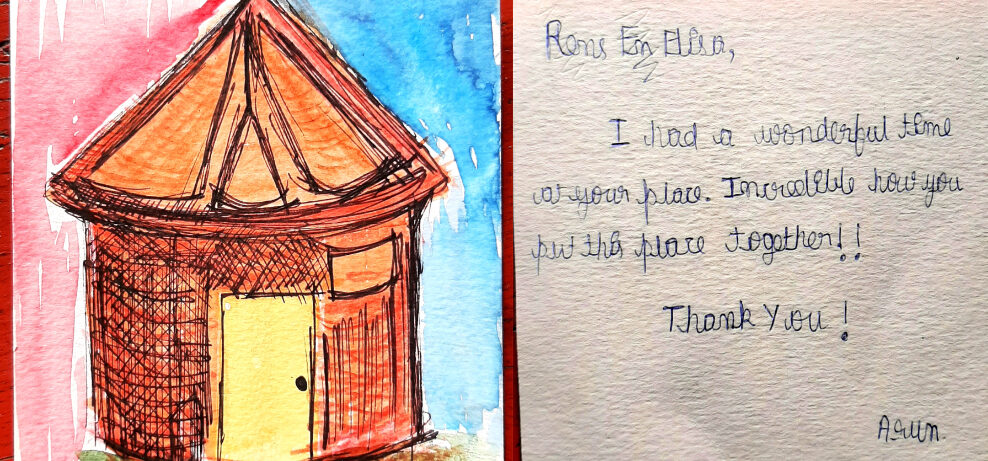 Rens En Elisa,
I had a wonderful time
at your place. Incredible how you
put this place together!!
Thank You!
Arun.